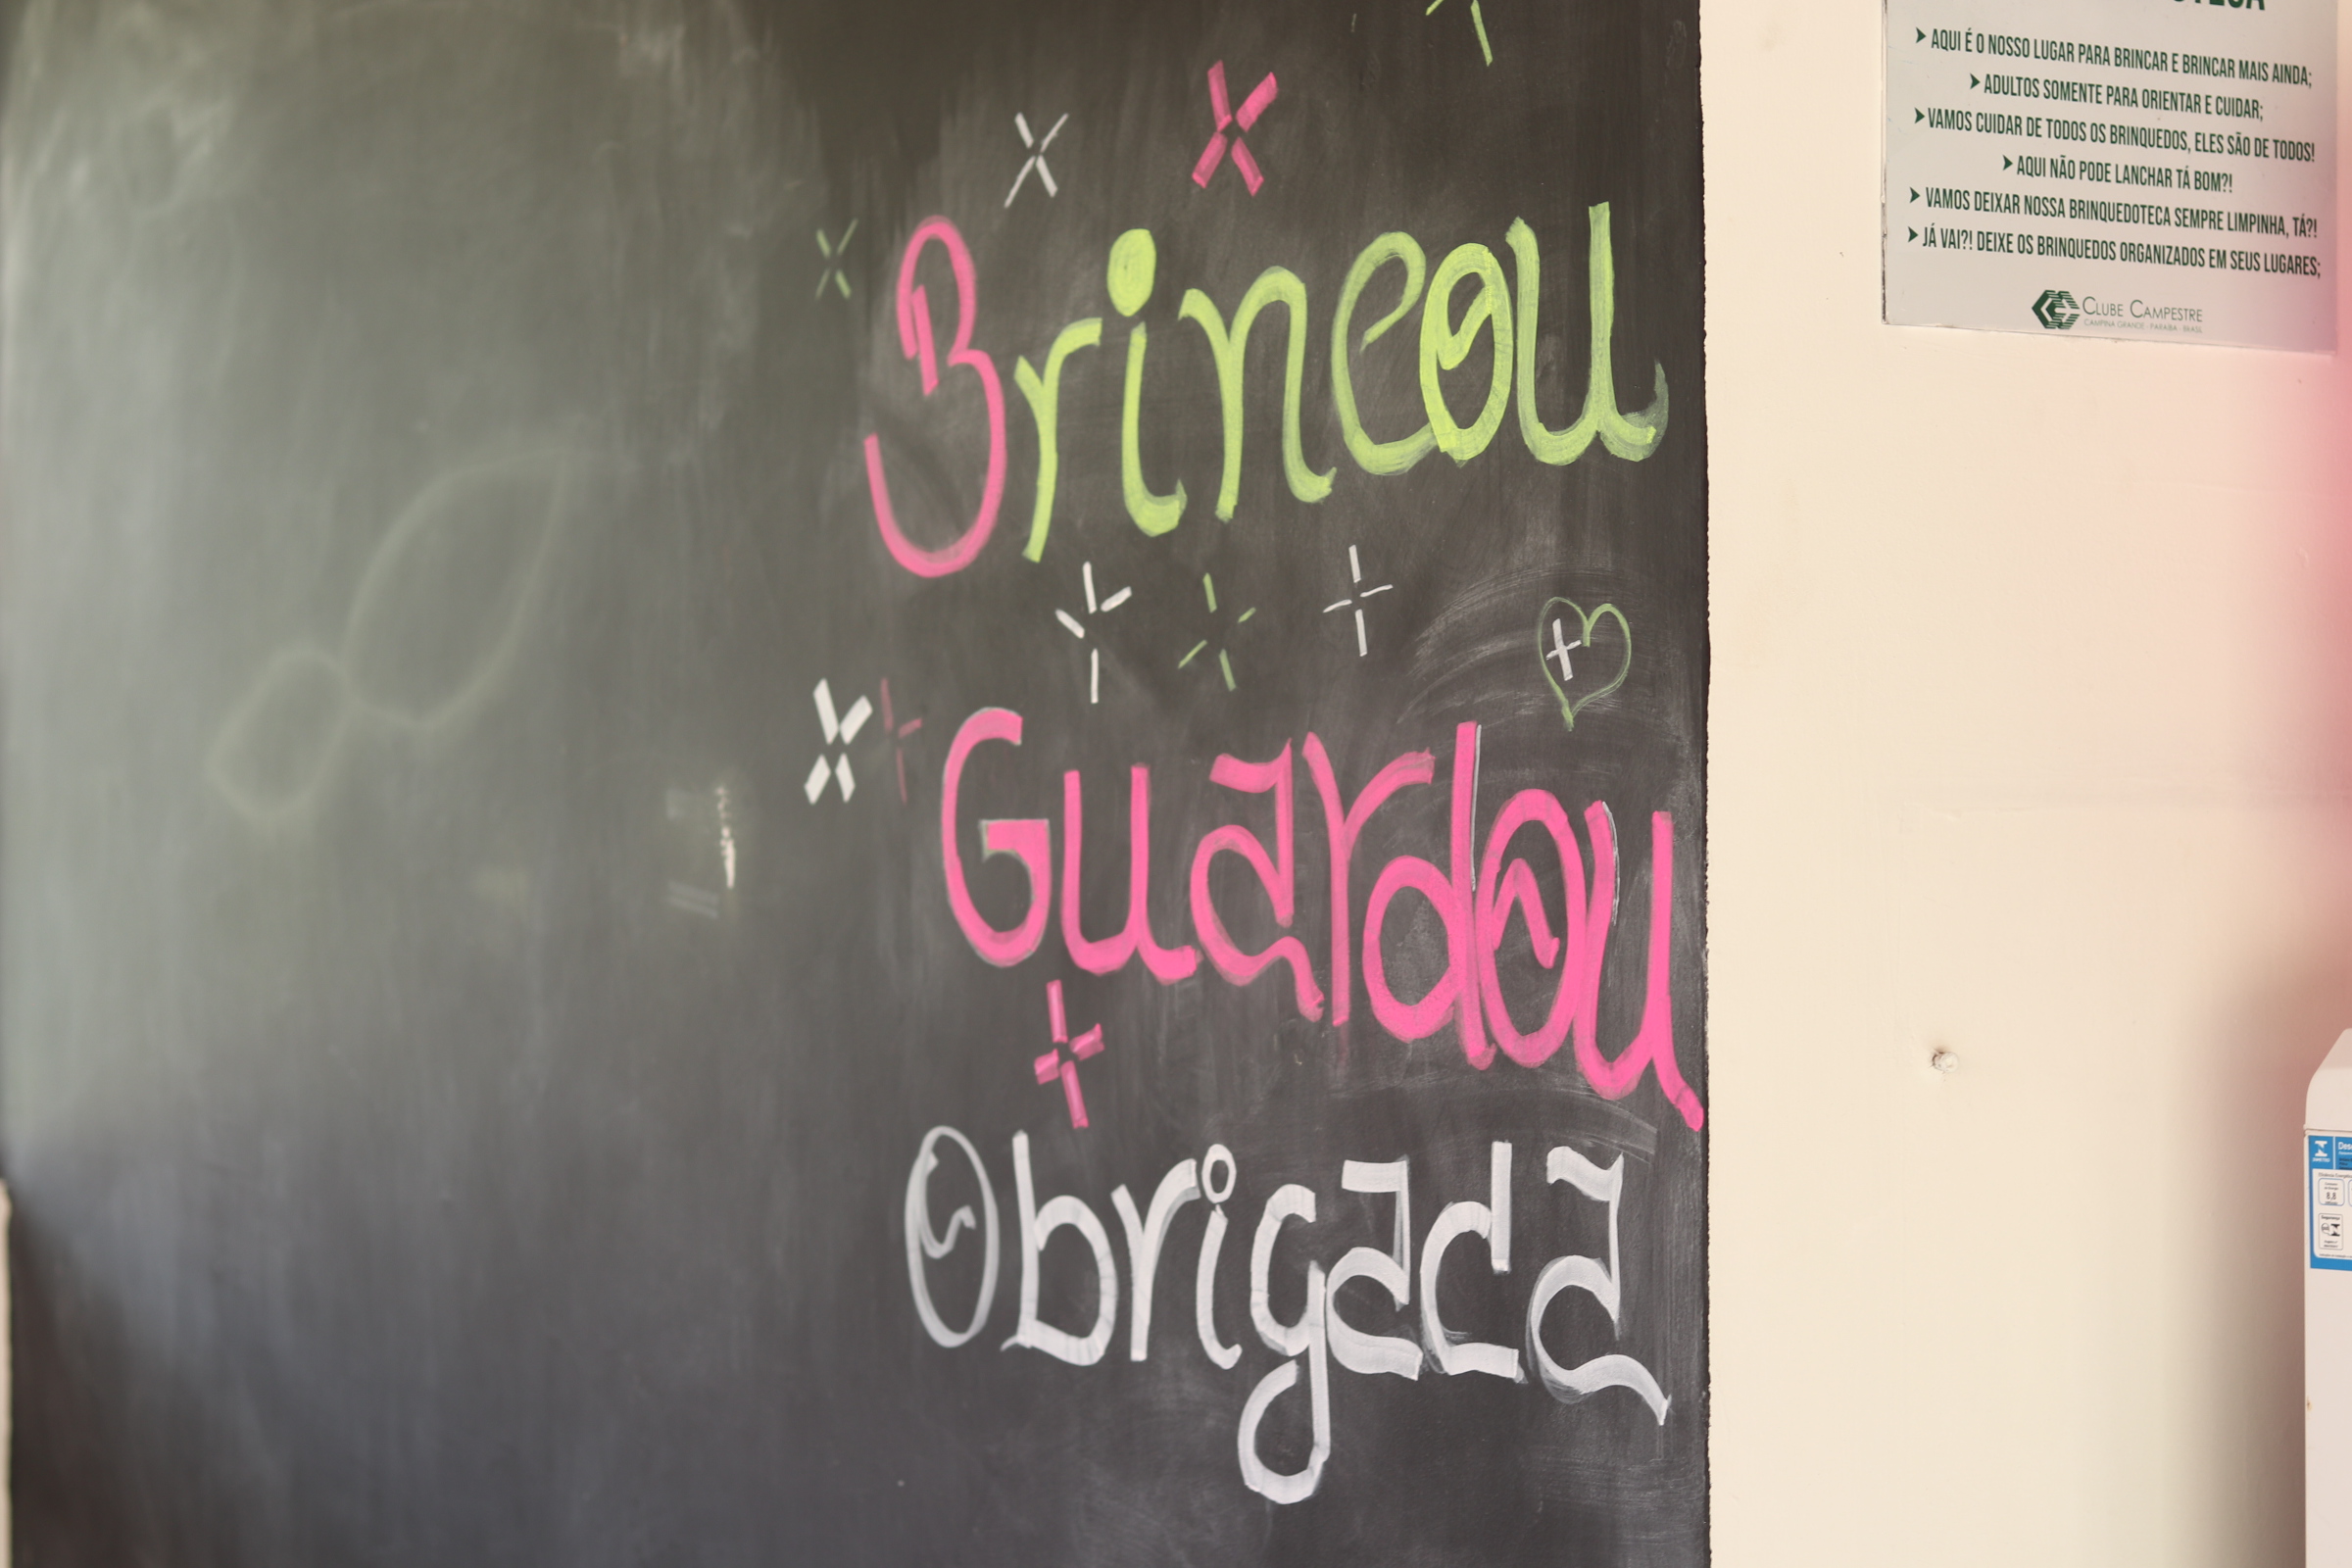 Brincou
Guardou
Obrigada
➤ AQUI É O NOSSO LUGAR PARA BRINCAR E BRINCAR MAIS AINDA;
➤ ADULTOS SOMENTE PARA ORIENTAR E CUIDAR;
➤ VAMOS CUIDAR DE TODOS OS BRINQUEDOS, ELES SÃO DE TODOS!
➤ AQUI NÃO PODE LANCHAR TÁ BOM?!
➤ VAMOS DEIXAR NOSSA BRINQUEDOTECA SEMPRE LIMPINHA, TÁ?!
➤ JÁ VAI?! DEIXE OS BRINQUEDOS ORGANIZADOS EM SEUS LUGARES;
CLUBE CAMPESTRE
CAMPINA GRANDE - PARAÍBA - BRASIL